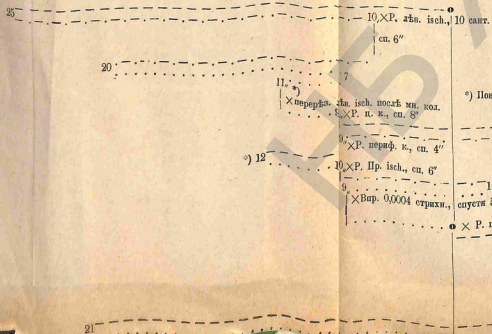 25
10, ×Р. лѣв. isch., 10 сант.
сп. 6"
20
7
11. *)
× перерѣз. лѣв. isch. послѣ мн. кол.
8, ×Р. ц. к., сп. 8"
*) Пов
9 ×Р. периф. к., сп. 4"
*) 12
10, ×Р. Пр. isch., сп. 6"
9
1
×Впр. 0,0004 стрихн., спустя
× Р. п
21